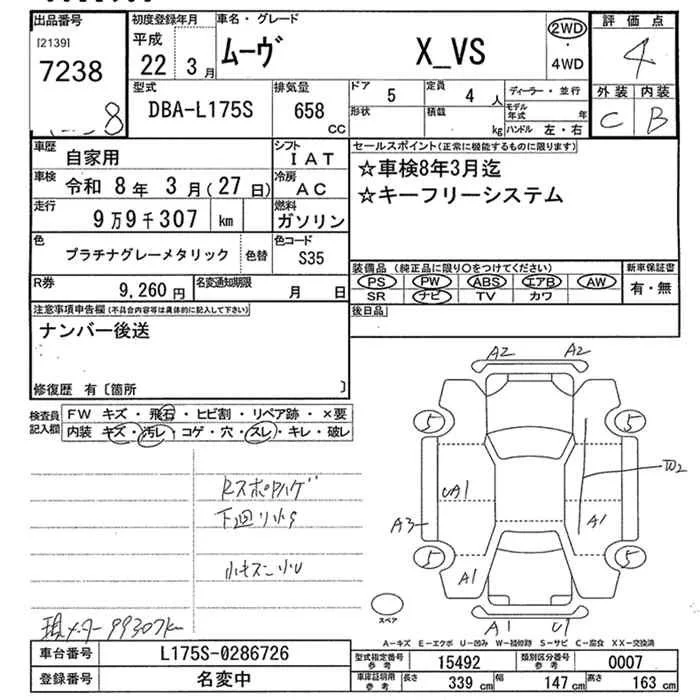 出品番号 初度登録年月 車名・グレード 2WD・4WD 評価点
[2139] 平成 ムーヴ X_VS 4
7238 22年 3月
8
型式 排気量 ドア 定員 ディーラー・並行 外装 内装
DBA-L175S 658cc 5 4人 C B
形状 積載 kg モデル年式 年 ハンドル 左・右
車歴 自家用 シフト IAT セールスポイント(正常に機能するものに限ります)
車検 令和 8年 3月(27日) 冷房 AC ☆車検8年3月迄
走行 9万9千307 km 燃料 ガソリン ☆キーフリーシステム
色 プラチナグレーメタリック 色替 色コード S35
装備品(純正品に限り○をつけてください) 新車保証書
PS PW ABS エアB AW 有・無
SR ナビ TV カワ
R券 9,260円 名変通知期限 月 日
後日品
注意事項申告欄(不具合内容等は具体的に記入して下さい)
ナンバー後送
修復歴 有〔箇所 〕
検査員記入欄 FW キズ・飛石・ヒビ割・リペア跡・×要
内装 キズ・汚レ・コゲ・穴・スレ・キレ・破レ
A2 A2
5 5
W2
UA1
A3 A1
5 5
A1
A1 U1
スペア
下回り小S
現メーター99307k
A-キズ E-エクボ U-凹み W-補修跡 S-サビ C-腐食 XX-交換済
車台番号 L175S-0286726
登録番号 名変中
型式指定番号 参考 15492 類別区分番号 参考 0007
車庫証明用 参考 長さ 339 cm 幅 147 cm 高さ 163 cm